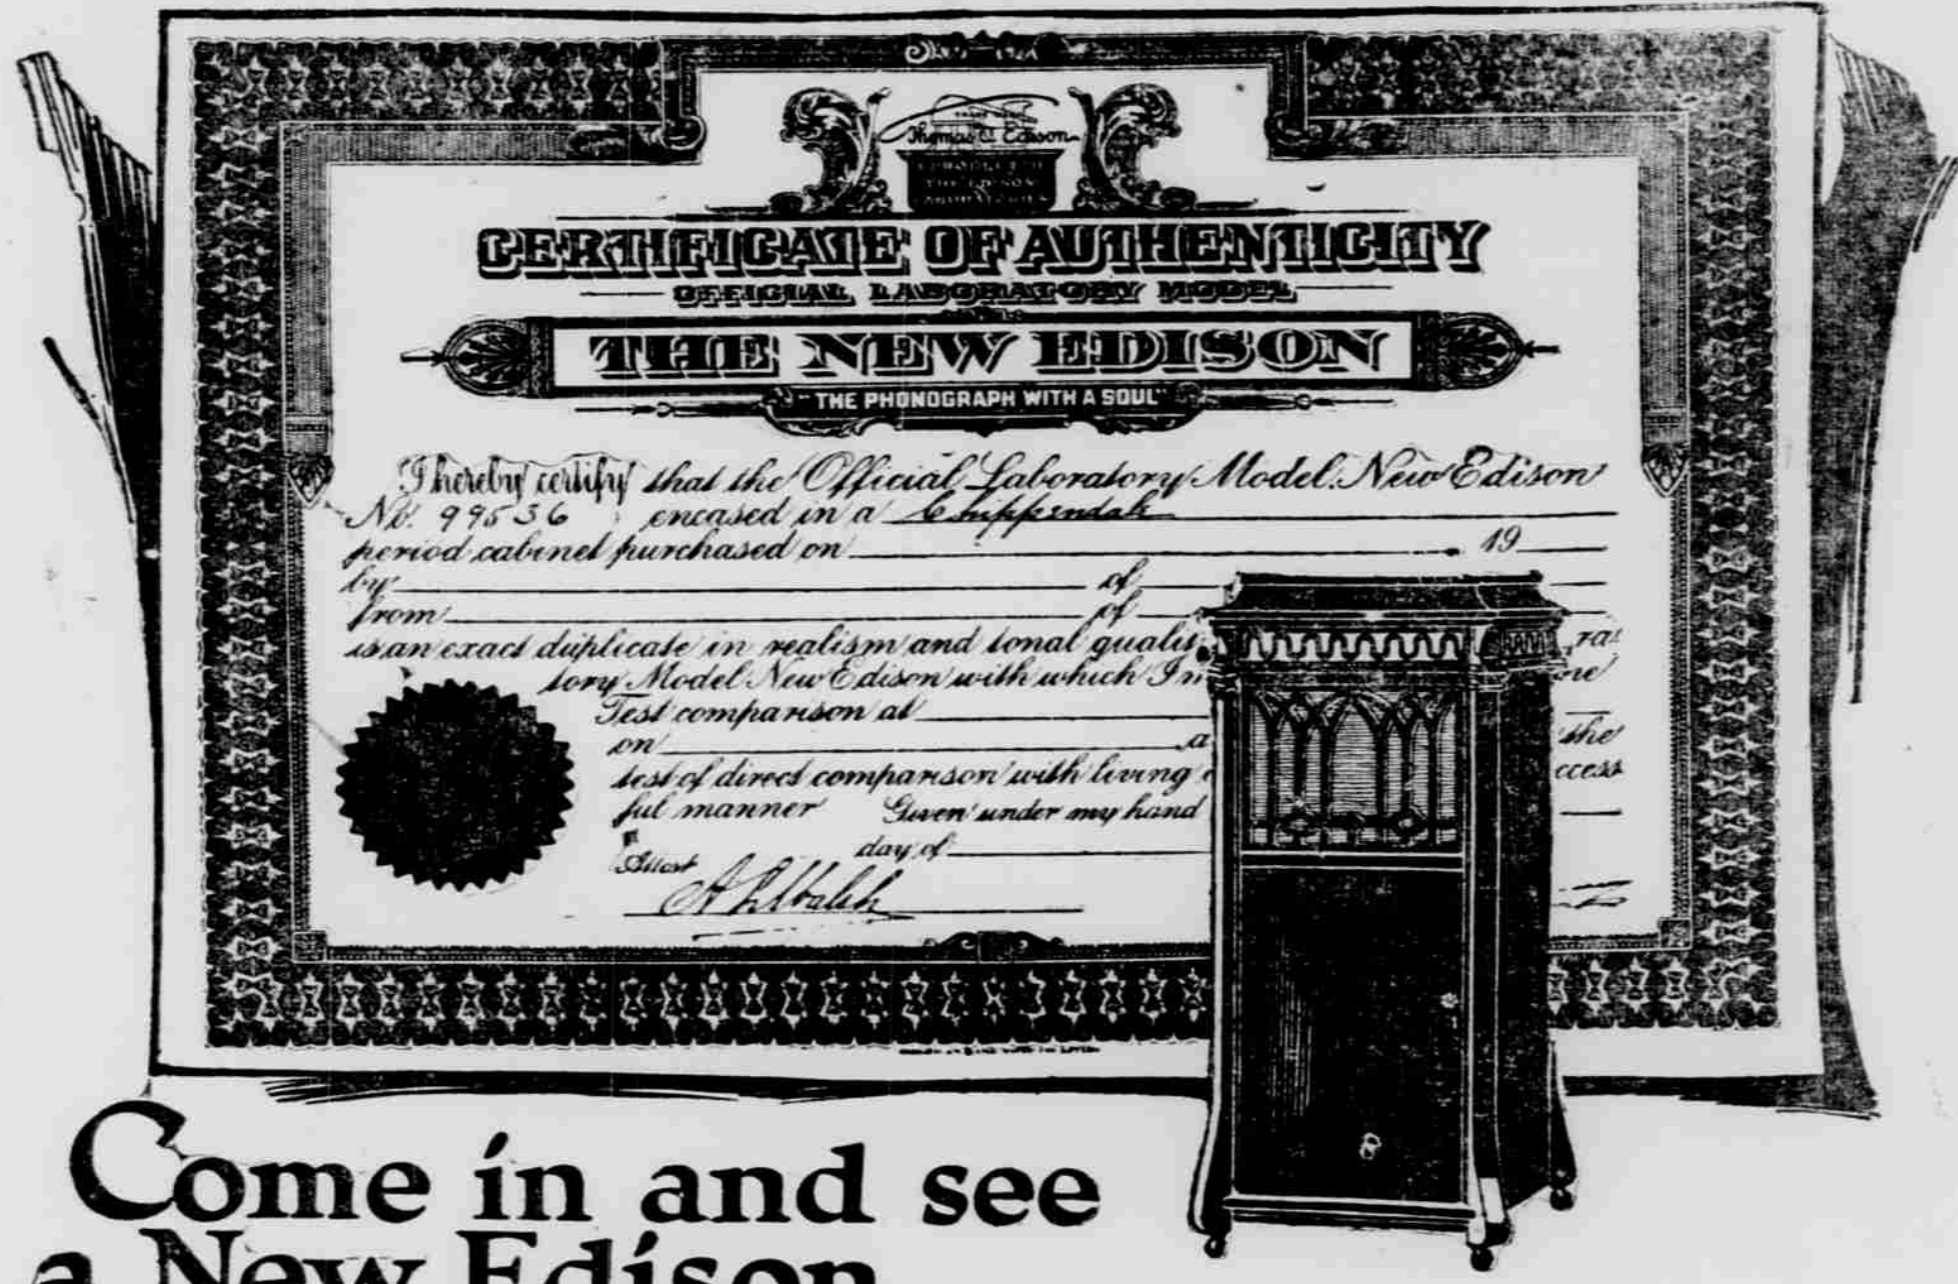 Thomas A Edison
CERTIFICATE OF AUTHENTICITY
OFFICIAL LABORATORY MODEL
THE NEW EDISON
"THE PHONOGRAPH WITH A SOUL"
I hereby certify that the Official Laboratory Model New Edison
No. 99536 encased in a Chippendale
period cabinet purchased on 19
by of
from of
is an exact duplicate in realism and tonal qualit rat
tory Model New Edison with which I n one
Test comparison at
on a the
test of direct comparison with living ccess
ful manner Given under my hand
day of
Attest
Come in and see
a New Edison